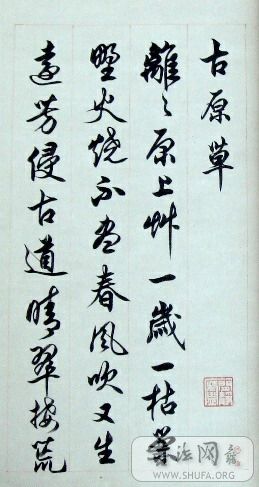 古原草
離〻原上艸一歲一枯
野火燒不盡春風吹又生
遠芳侵古道晴翠接荒
書法网
WWW.SHUFA.ORG